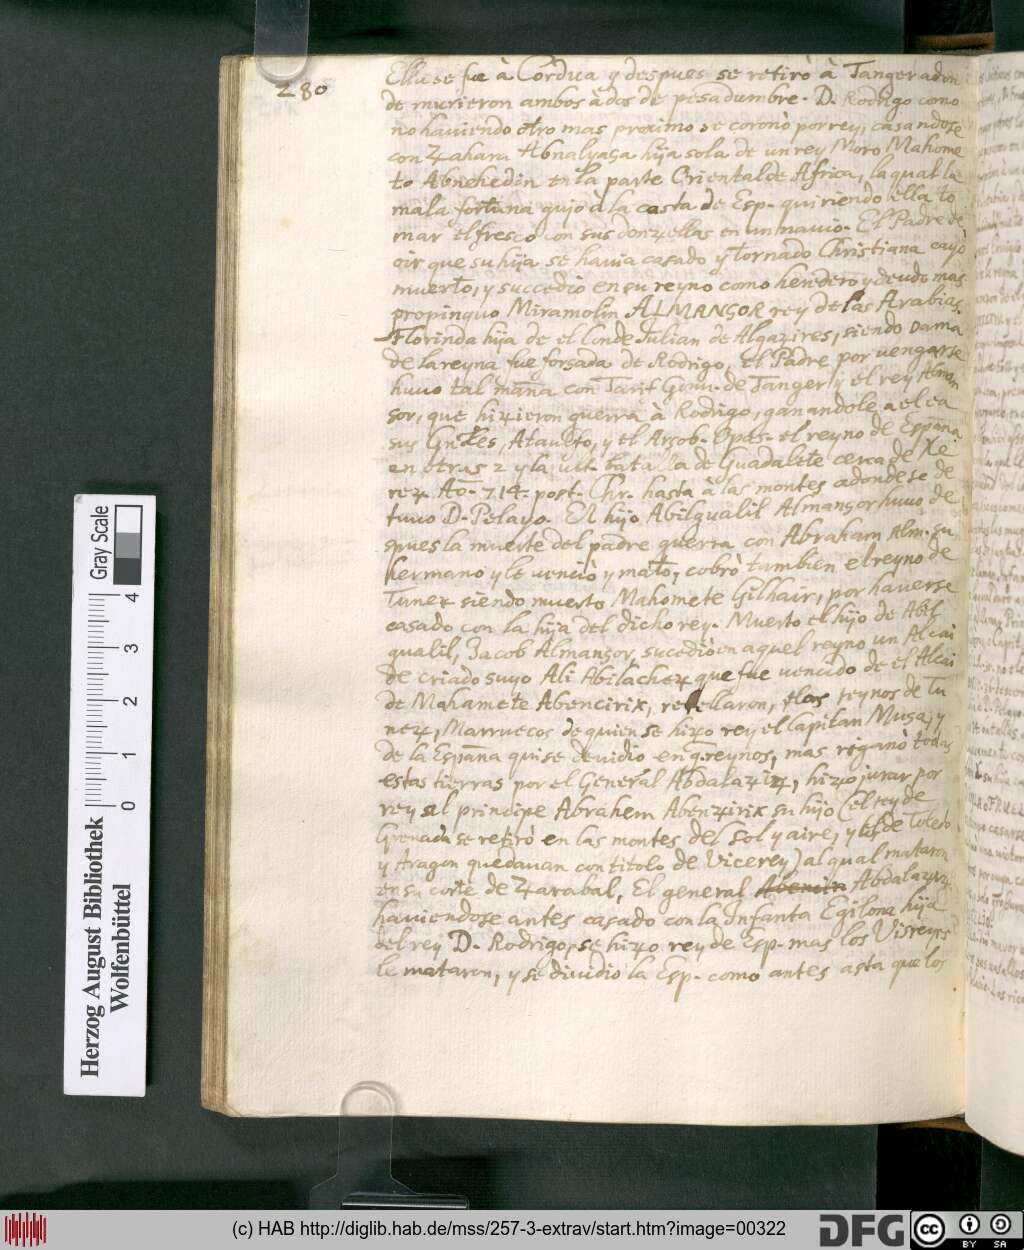 280
Ella se fue à Cordua y despues se retirò à Tanger adon
de murieron ambos à dos de pesadumbre. D. Rodrigo como
no haviendo otro mas proximo se coronò por rey, casandose
con Zahara Abnalyaça hija sola de un rey Moro Mahome
to Abnehedin en la parte Oriental de Africa, la qual la
mala fortuna gujo à la costa de Esp. quiriendo ella to
mar el fresco con sus donzellas en un navio. El Padre de
oir que su hija se havia casado y tornado Christiana cayò
muerto, y succedio en su reyno como heredero y deudo mas
propinquo Miramolin ALMANÇOR rey de las Arabias.
Florinda hija de el Conde Julian de Algazires, siendo Dama
de la reyna fue forsada de Rodrigo, el Padre por vengarse
huvo tal maña con Tarif Govr. de Tanger y el rey Alman
sor, que hizieron guerra à Rodrigo, ganandole a el ea
sus Gnles, Ataulfo, y el Arsob. Opas. el reyno de España
en otras 2 y la ult. batalla de Guadalete cerca de Xe
rez Ao. 714. post. Chr. hasta à las montes adonde se de
tuvo D. Pelayo. El hijo Abilgualil Almançor huvo de
spues la muerte del padre guerra con Abraham Alm. su
hermano y le venciò y matò, cobrò tambien el reyno de
Tunez siendo muerto Mahomete Gilhair, por haverse
casado con la hija del dicho rey. Muerto el hijo de Abil
gualil, Jacob Almançor, sucediò en aquel reyno un Alcai
de criado suyo Ali Abilachez que fue vencido de el Alcai
de Mahamete Abencirix, rebellaron, flos reynos de Tu
nez, Marruecos de quien se hizo rey el Capitan Musa, y
de la España qui se devidio en 9. reynos, mas riganò todas
estas tierras por el General Abdalaziz, hizo jurar por
rey al principe Abrahem Abenzirix su hijo (el rey de
Grenada se retirò en las montes del Sol y aire, y los de Toledo
y Aragon quedavan con titolo de Vicerey) al qual mataron
en su corte de Zarabal, El general Abdalaziz
haviendose antes casado con la Infanta Egilona hija
del rey D. Rodrigo, se hizo rey de Esp. mas los Visreyes
le mataron, y se dividio la Esp. como antes asta que los
Herzog August Bibliothek
Wolfenbüttel
Gray Scale
0 1 2 3 4
(c) HAB http://diglib.hab.de/mss/257-3-extrav/start.htm?image=00322
DFG
cc BY SA